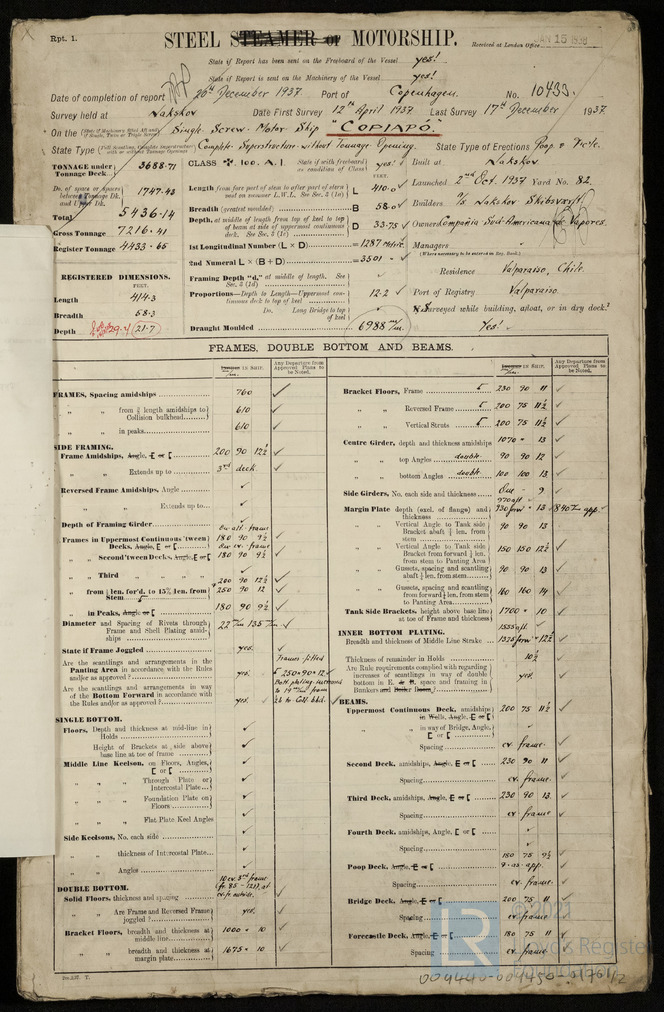 Rpt. 1.
STEEL STEAMER or MOTORSHIP.
Received at London Office JAN 15 1938
State if Report has been sent on the Freeboard of the Vessel yes!
State if Report is sent on the Machinery of the Vessel yes!
Date of completion of report 20th December 1937 Port of Copenhagen. No. 10433.
Survey held at Nakskov Date First Survey 12th April 1937 Last Survey 17th December 1937
On the Single Screw Motor Ship "COPIAPO."
State Type Complete Superstructure without Tonnage Opening. State Type of Erections Poop & Fc'le.
TONNAGE under Tonnage Deck 3688.71
Do. of space or spaces between Tonnage Dk. and Upr. Dk. 1747.43
Total 5436.14
Gross Tonnage 7216.41
Register Tonnage 4433.65
REGISTERED DIMENSIONS.
FEET.
Length 414.3
Breadth 58.3
Depth 21.7
CLASS 100.A.1 State if with freeboard as condition of Class yes!
FEET.
Length from fore part of stem to after part of stern post on summer L.W.L. See Sec. 3 (1a) L 410.0
Breadth (greatest moulded) B 58.0
Depth, at middle of length from top of keel to top of beam at side of uppermost continuous deck. See Sec. 3 (1c) D 33.75
1st Longitudinal Number (L × D) = 1287
2nd Numeral L × (B + D) = 3501
Framing Depth "d," at middle of length. See Sec. 3 (1d)
Proportions—Depth to Length—Uppermost continuous deck to top of keel 12.2
Do. Long Bridge to top of keel
Draught Moulded 6988 m/m.
Built at Nakskov
Launched 2nd Oct. 1937 Yard No. 82
Builders A/S Nakskov Skibsværft
Owners Compania Sud-Americana de Vapores.
Managers
(Where necessary to be entered in Reg. Book.)
Residence Valparaiso, Chile.
Port of Registry Valparaiso.
If Surveyed while building, afloat, or in dry dock? Yes!
FRAMES, DOUBLE BOTTOM AND BEAMS.
IN SHIP.
Any Departure from Approved Plans to be Noted.
FRAMES, Spacing amidships 760
" " from 3/5 length amidships to Collision bulkhead 610
" " in peaks 610
SIDE FRAMING.
Frame Amidships, Angle, E or [ 200 90 12½
" " Extends up to 3rd deck.
Reversed Frame Amidships, Angle
" " Extends up to
Depth of Framing Girder
Frames in Uppermost Continuous 'tween Decks, Angle, E or [ 180 90 9½
" " Second 'tween Decks, Angle, E or [ 180 90 9½
" " Third " "
" " from ⅕ len. for'd. to 15% len. from Stem 200 90 12½ 250 90 12
" " in Peaks, Angle or [ 180 90 9½
Diameter and Spacing of Rivets through Frame and Shell Plating amidships 22 m/m 135 m/m
State if Frame Joggled yes.
Are the scantlings and arrangements in the Panting Area in accordance with the Rules and/or as approved? yes.
Frames fitted 250×90×12
Are the scantlings and arrangements in way of the Bottom Forward in accordance with the Rules and/or as approved? yes.
SINGLE BOTTOM.
Floors, Depth and thickness at mid-line in Holds
" Height of Brackets at side above base line at toe of frame
Middle Line Keelson, on Floors, Angles, [ or [
" " " Through Plate or Intercostal Plate
" " " Foundation Plate on Floors
" " " Flat Plate Keel Angles
Side Keelsons, No. each side
" " thickness of Intercostal Plate
" " Angles
DOUBLE BOTTOM.
Solid Floors, thickness and spacing 10 ev. 3rd frame
" " Are Frame and Reversed Frame joggled? yes.
Bracket Floors, breadth and thickness at middle line 1000 × 10
" " breadth and thickness at margin plate 1675 × 10
Bracket Floors, Frame 230 90 11
" " Reversed Frame 200 75 11½
" " Vertical Struts 200 75 11½
Centre Girder, depth and thickness amidships 1070 × 13
" " top Angles double 90 90 12
" " bottom Angles double 100 100 13
Side Girders, No. each side and thickness One - 9
Margin Plate depth (excl. of flange) and thickness 970 aft 730 forw × 13 840 m/m app.
" " Vertical Angle to Tank side Bracket abaft ¼ len. from stem 90 90 13
" " Vertical Angle to Tank side Bracket from forward ¼ len. from stem to Panting Area 150 150 12½
" " Gussets, spacing and scantling abaft ¼ len. from stem 90 90 13
" " Gussets, spacing and scantling from forward ¼ len. from stem to Panting Area 160 160 14
Tank Side Brackets, height above base line at toe of Frame and thickness 1700 × 10
INNER BOTTOM PLATING.
Breadth and thickness of Middle Line Strake 1555 aft 1375 forw × 12½
Thickness of remainder in Holds 10½
Are Rule requirements complied with regarding increases of scantlings in way of double bottom in E. & B. space and framing in Bunkers and Boiler Room? yes.
BEAMS.
Uppermost Continuous Deck, amidships in Wells, Angle, E or [ 200 75 11½
" " in way of Bridge, Angle, [ or [
Spacing ev. frame.
Second Deck, amidships, Angle, E or [ 230 90 11
Spacing ev. frame.
Third Deck, amidships, Angle, E or [ 230 90 13
Spacing ev. frame
Fourth Deck, amidships, Angle, [ or [
Spacing
Poop Deck, Angle, E or [ 180 75 9½
Spacing ev. frame.
Bridge Deck, Angle, E or [ 200 75 11
Spacing ev. frame.
Forecastle Deck, Angle, E or [ 180 75 11
Spacing ev. frame.
© 2021
LR
Lloyd's Register
004440-004450-0176 1/2